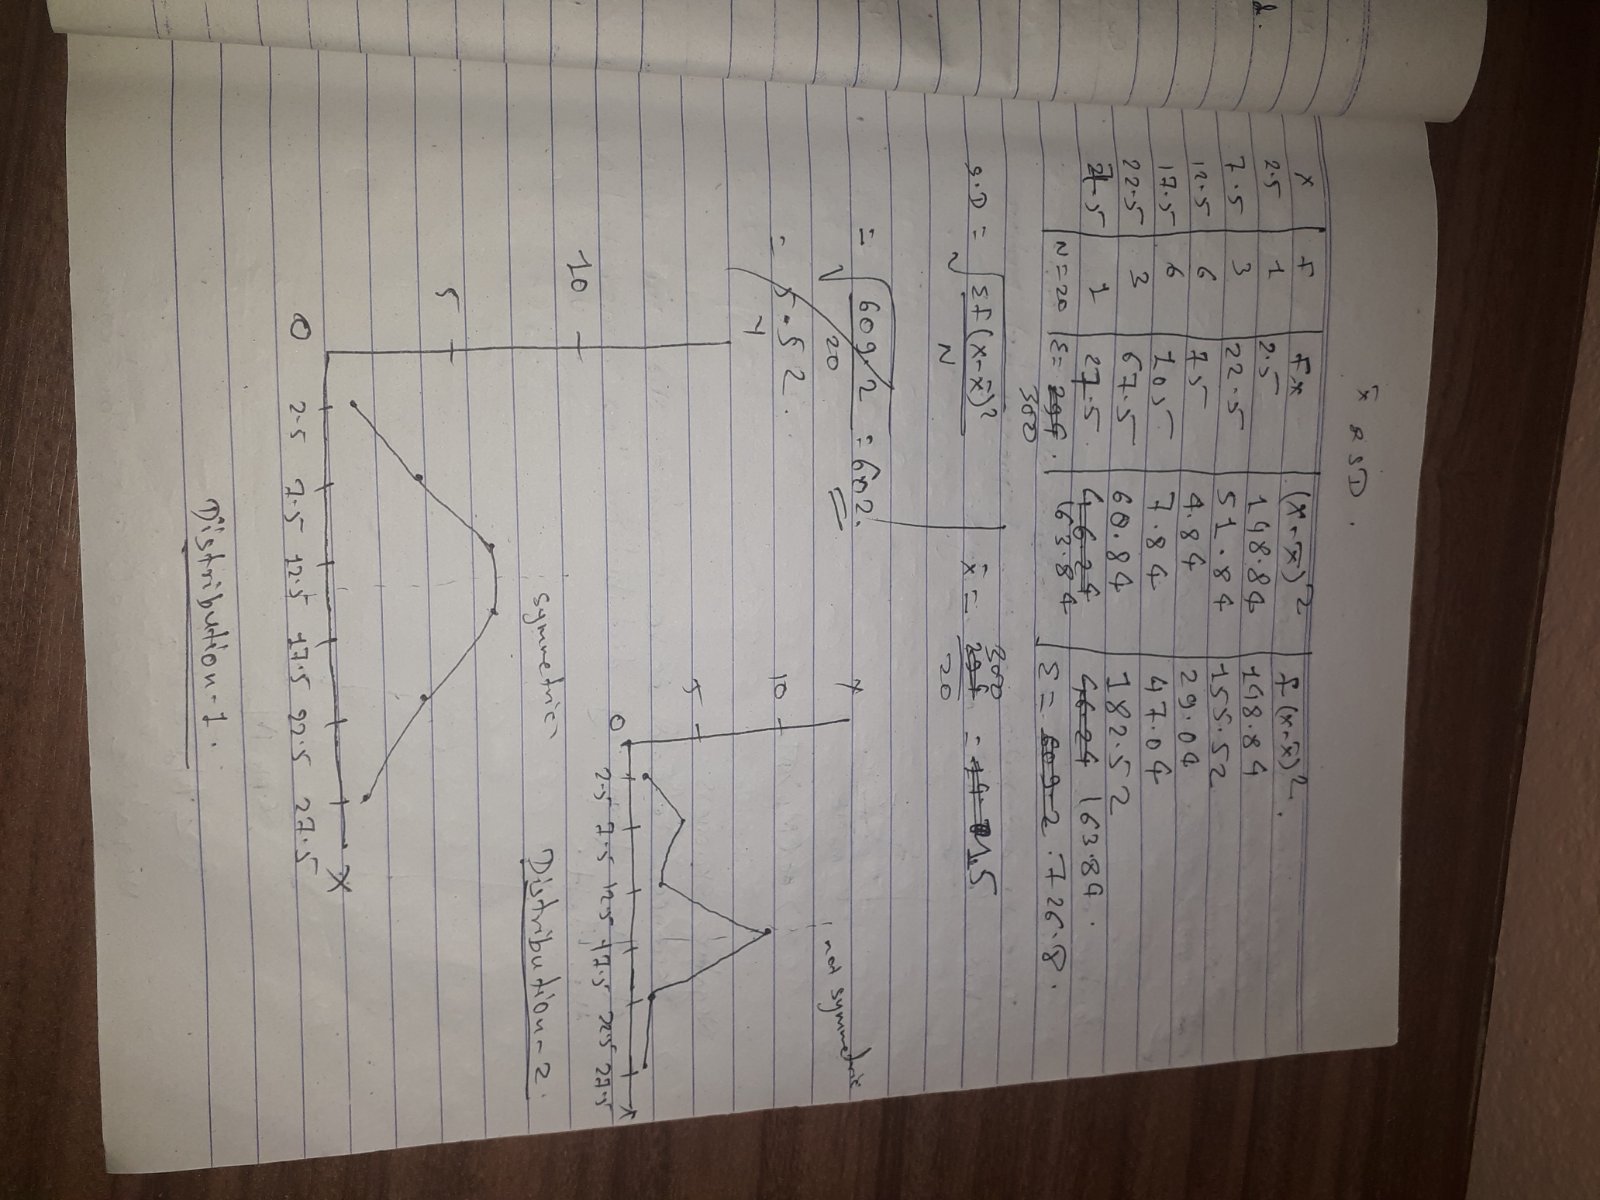 x̄ & SD.
x f fx (x-x̄)² f(x-x̄)².
2.5 1 2.5 148.84 148.84
7.5 3 22.5 51.84 155.52
12.5 6 75 4.84 29.04
17.5 6 105 7.84 47.04
22.5 3 67.5 60.84 182.52
27.5 1 27.5 46.24 163.84 46.24 163.84.
N=20 Σ= 294. 300 Σ= 609.2. 726.8.
S.D = √Σf(x-x̄)²/N
x̄ = 294 300/20 = 14.7 15
= √609.2/20 = 602.
= 5.52.
y
10
5
0 2.5 7.5 12.5 17.5 22.5 27.5 x
symmetric
Distribution-1.
y
10
5
0 2.5 7.5 12.5 17.5 22.5 27.5 x
not symmetric
Distribution-2.